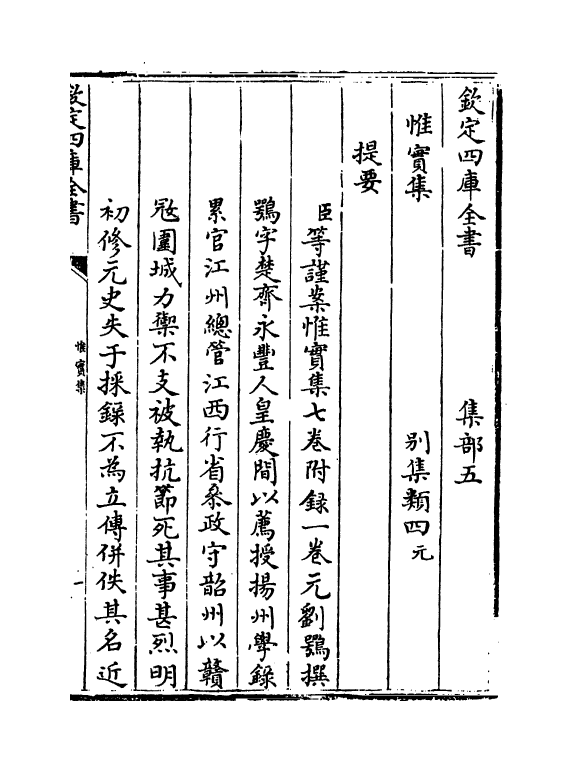 欽定四庫全書　集部五
惟實集　別集類四元
提要
臣等謹案惟實集七卷附録一卷元劉鶚撰
鶚字楚齊永豐人皇慶間以薦授揚州學錄
累官江州總管江西行省叅政守韶州以贛
宼圍城力禦不支被執抗節死其事甚烈明
初修元史失于採錄不為立傳併佚其名近
欽定四庫全書
惟實集
一